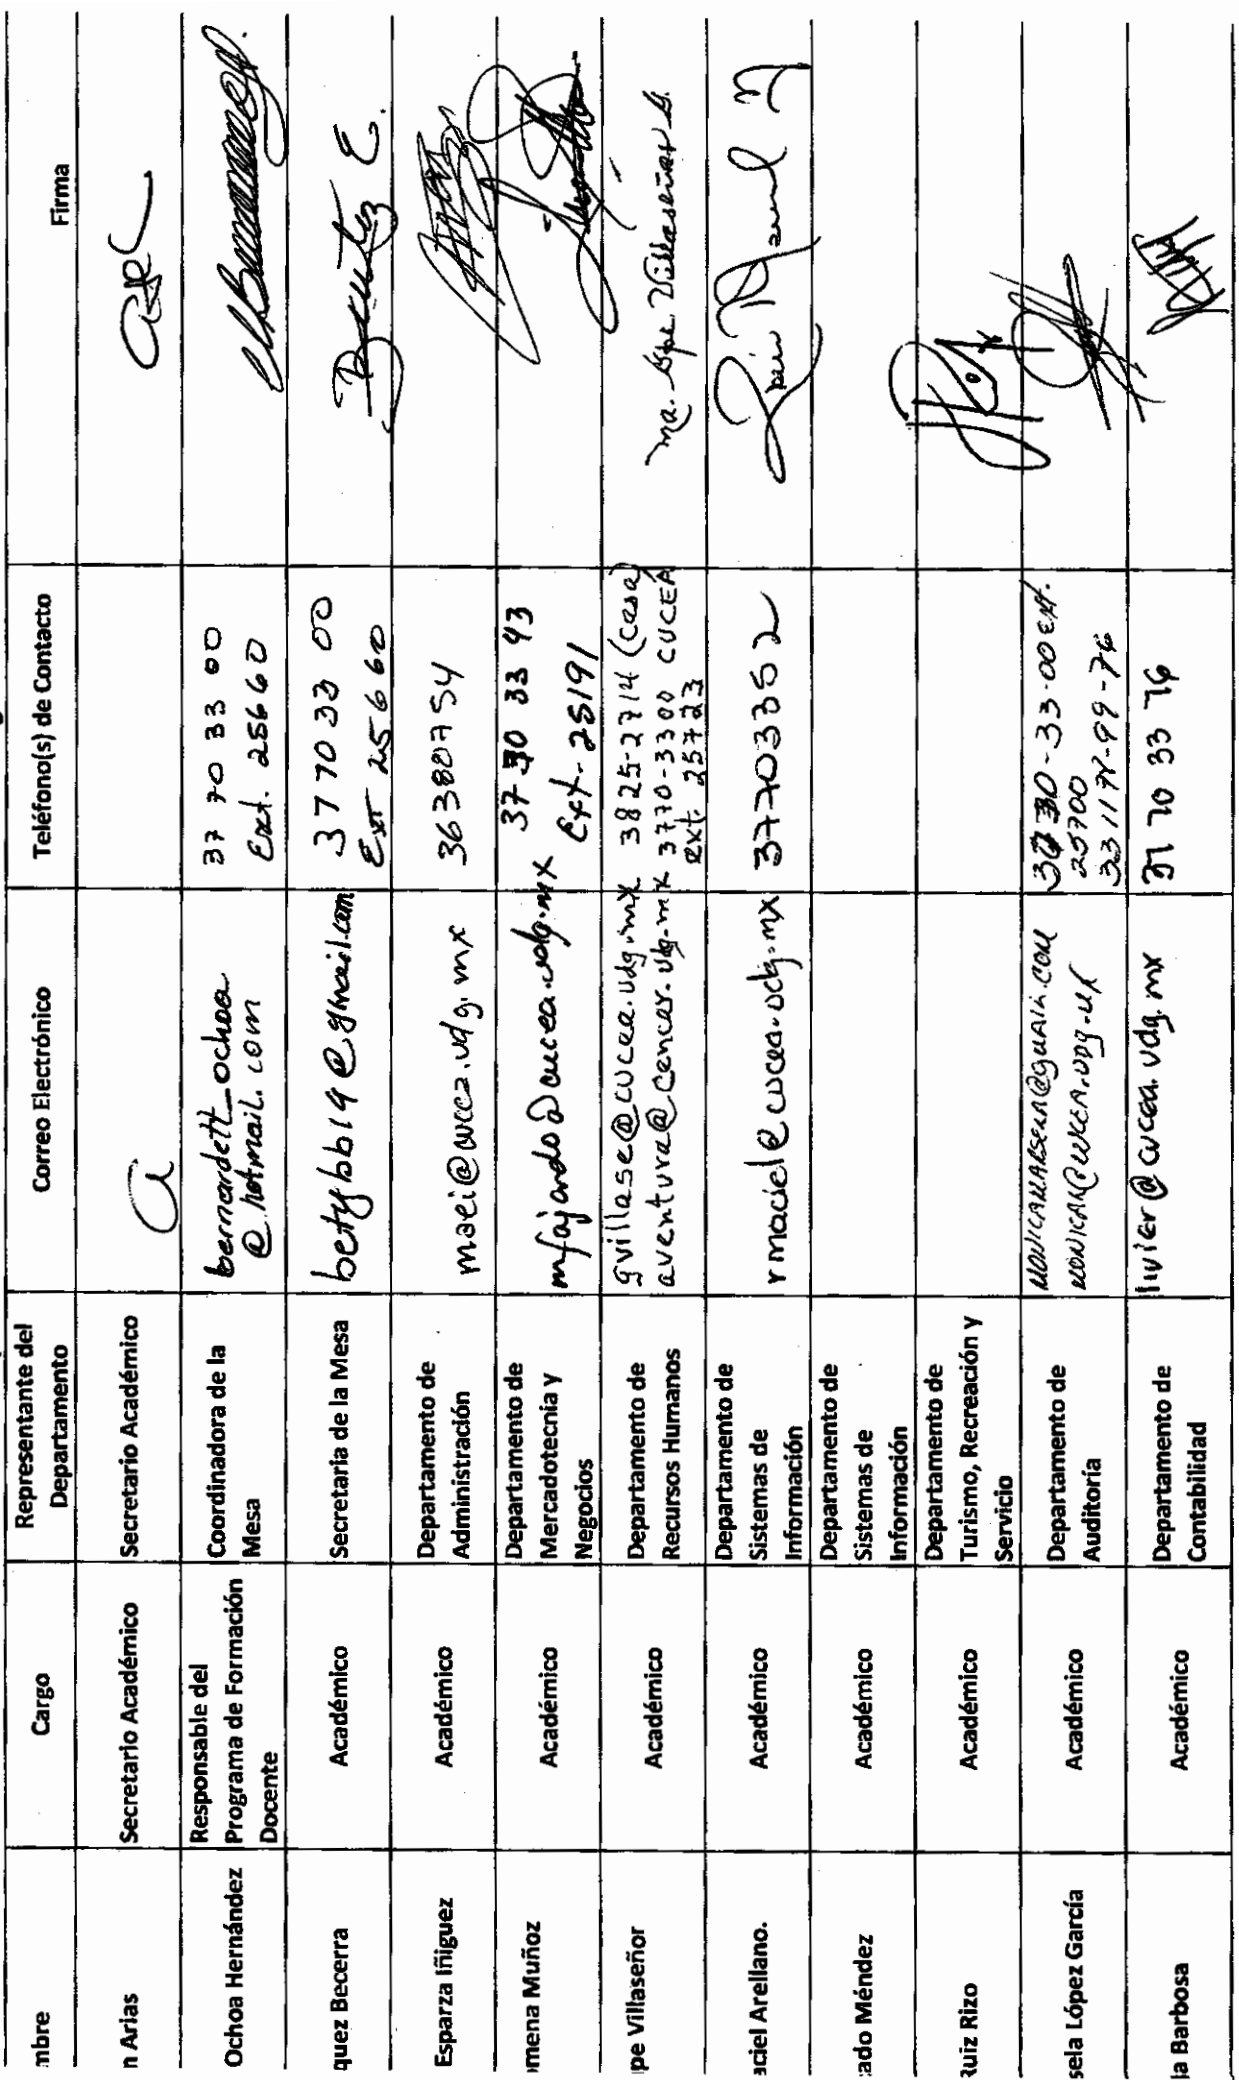 mbre Cargo Representante del Departamento Correo Electrónico Teléfono(s) de Contacto Firma
n Arias Secretario Académico Secretario Académico
Ochoa Hernández Responsable del Programa de Formación Docente Coordinadora de la Mesa bernardett_ochoa@hotmail.com 37 70 33 00 Ext. 25660
quez Becerra Académico Secretaria de la Mesa betybb19@gmail.com 3770 33 00 Ext 25660
Esparza Iñiguez Académico Departamento de Administración 36380754
mena Muñoz Académico Departamento de Mercadotecnia y Negocios mfajardo@cucea.udg.mx Ext-25191
pe Villaseñor Académico Departamento de Recursos Humanos gvillase@cucea.udg.mx aventura@cencar.udg.mx 3825-2714 (casa) 3770-3300 CUCEA ext. 25723 Ma. Gpe. Villaseñor G.
aciel Arellano. Académico Departamento de Sistemas de Información rmaciel@cucea.udg.mx 37703352
ado Méndez Académico Departamento de Sistemas de Información
Ruiz Rizo Académico Departamento de Turismo, Recreación y Servicio
sela López García Académico Departamento de Auditoría 25700
la Barbosa Académico Departamento de Contabilidad livier@cucea.udg.mx